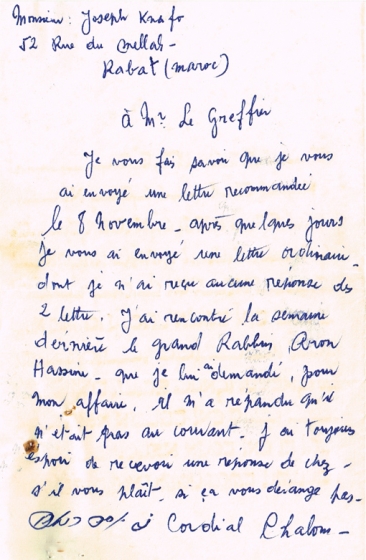 Monsieur: Joseph Knafo
52 Rue du Mellah -
Rabat (maroc)
à Mr Le Greffier
Je vous fais savoir que je vous
ai envoyé une lettre recommandée
le 8 Novembre - après quelques jours
Je vous ai envoyé une lettre ordinaire -
dont je n'ai reçu aucune réponse des
2 lettre. J'ai rencontré la semaine
dernière le grand Rabbin, Aron
Hassine - que je lui ai demandé, pour
mon affaire, il m'a répandu qu'il
n'etait pas au courant. J'ai toujours
espoir de recevoir une reponse de chez -
s'il vous plaît. si ça vous dérange pas -
Cordial Chalom -